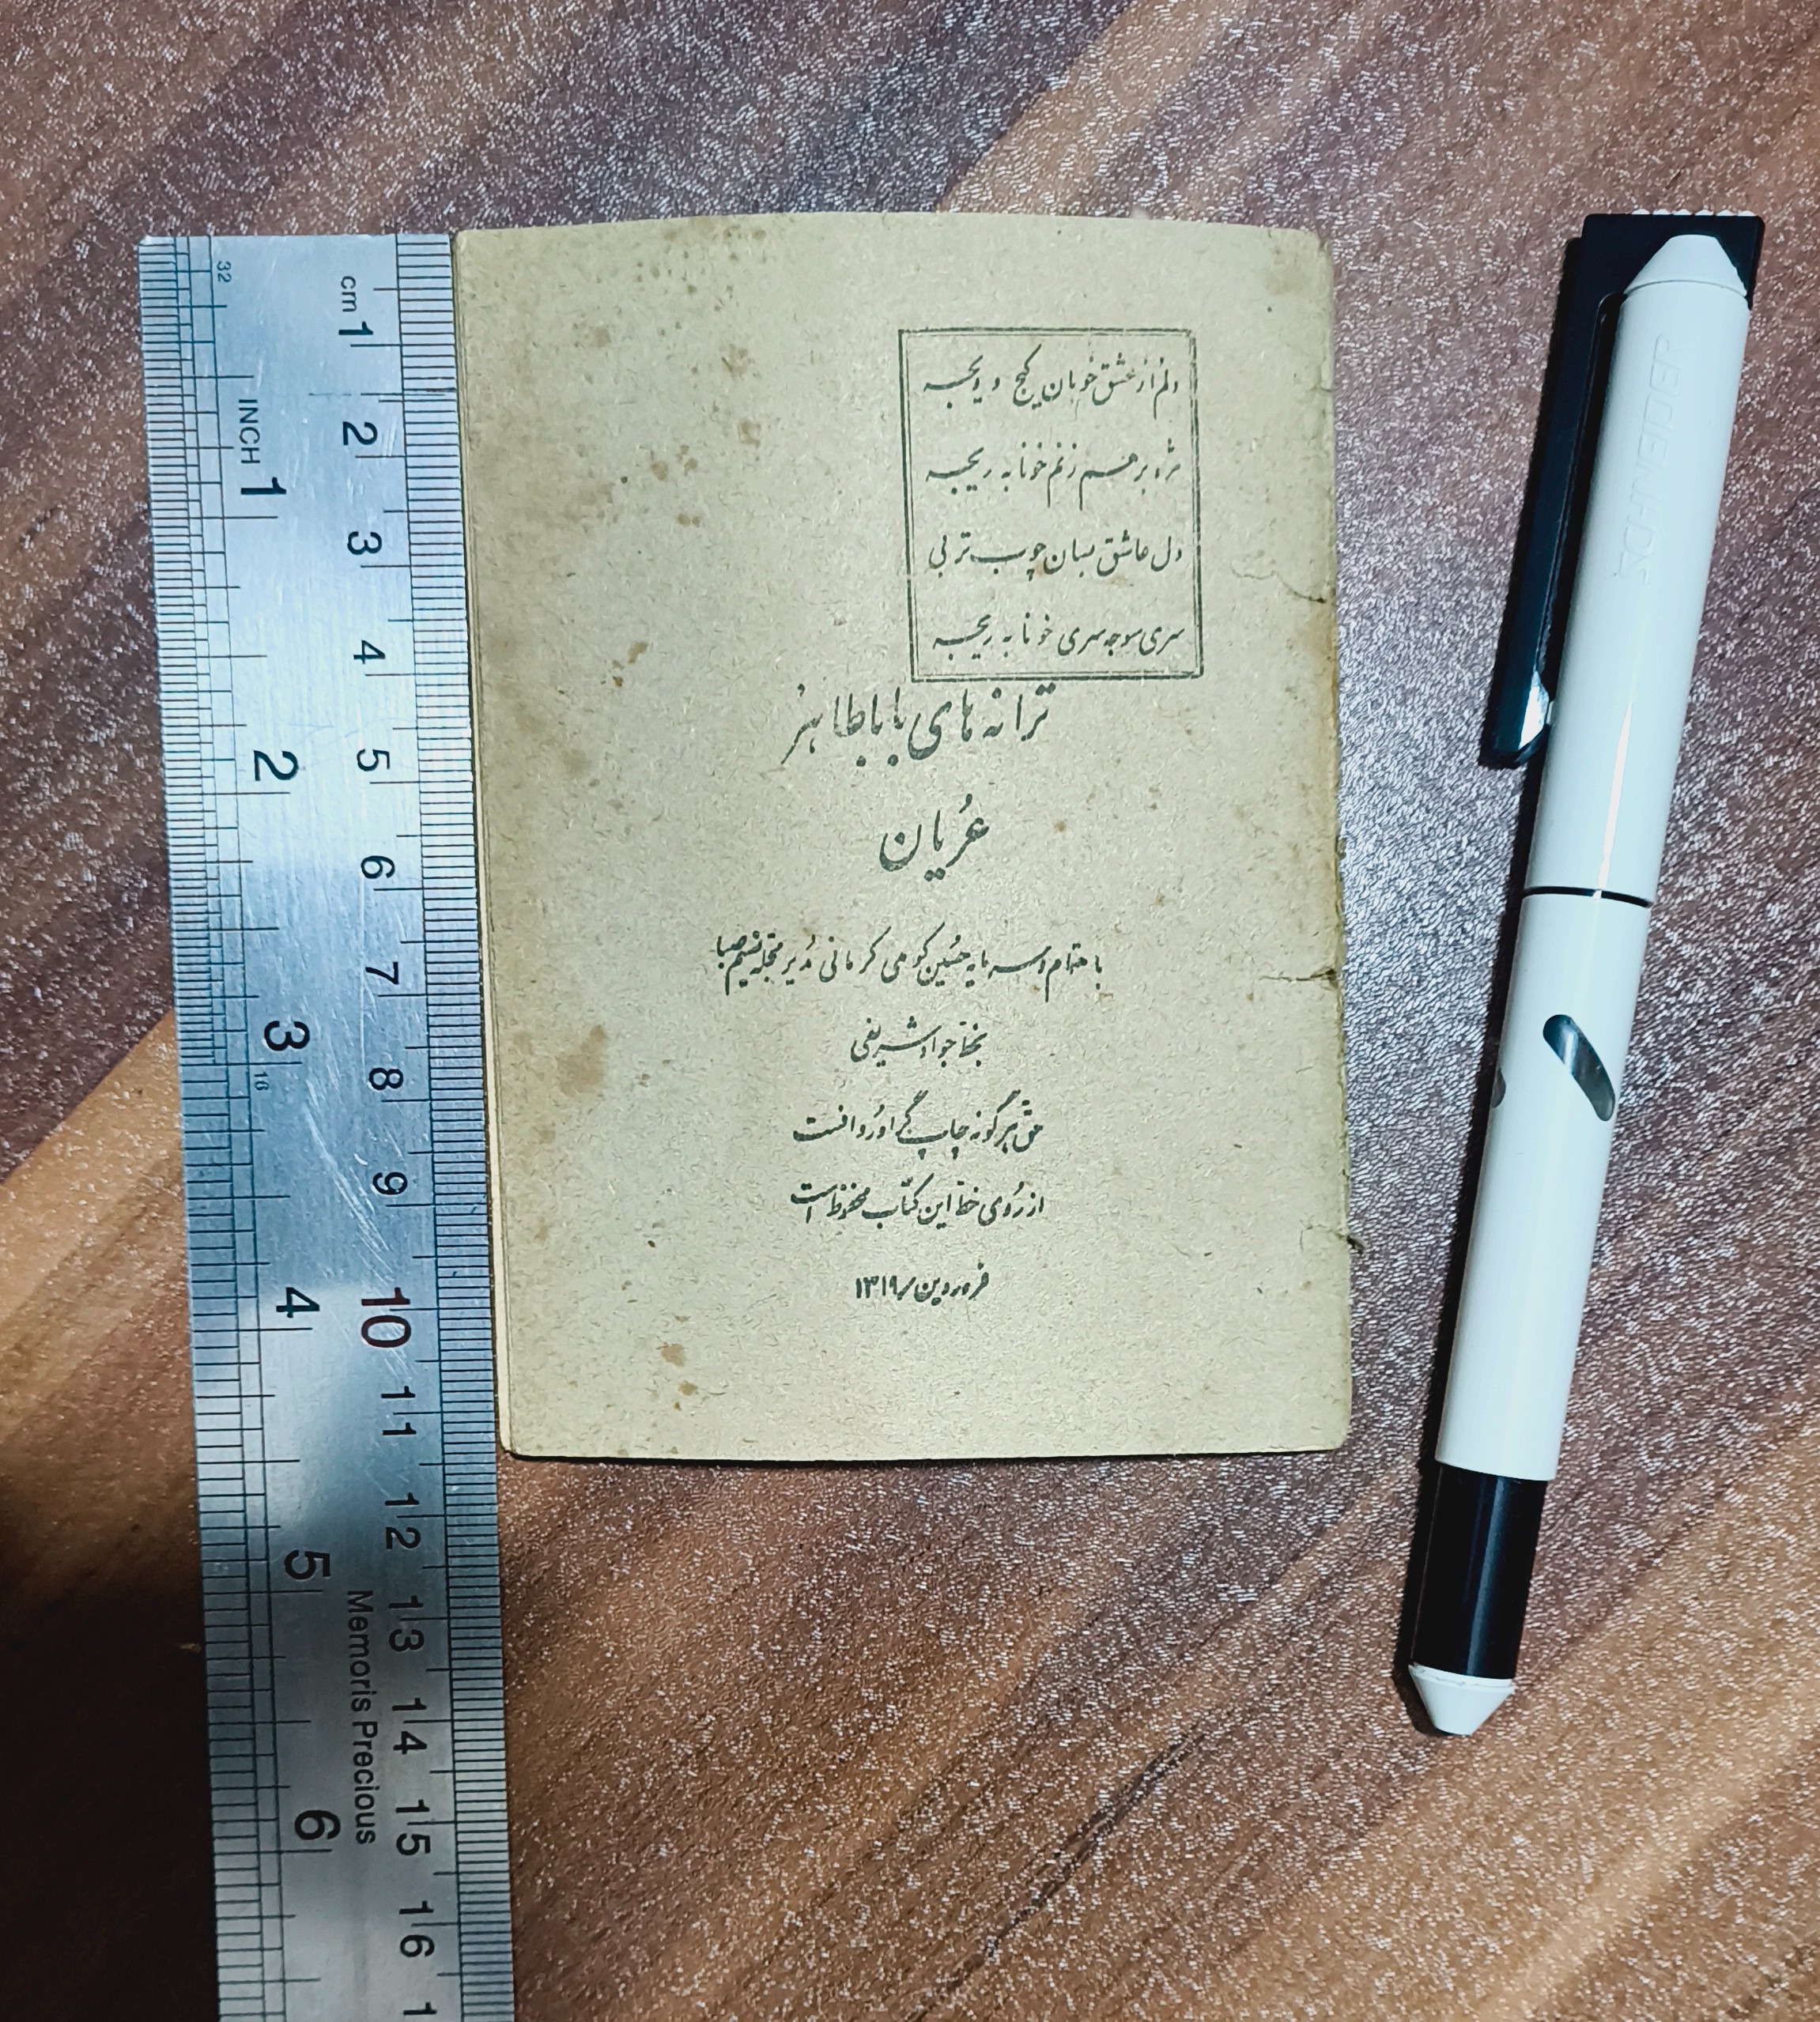 دلم از عشق خوبان گیج و ویجه
مژه برهم زنم خونابه ریجه
دل عاشق بسان چوب تر بی
سری سوجه سری خونابه ریجه
ترانه‌های باباطاهر
عُریان
باهتمام و سرمایه حُسین کوهی کرمانی مُدیر مجله نسیم صبا
بخط جواد شریفی
حق هرگونه چاپ گراور و افست
از رُوی خط این کتاب محفوظ است
فروردین ۱۳۱۹
cm 1 2 3 4 5 6 7 8 9 10 11 12 13 14 15 16 1
32
INCH 1 2 3 4 5 6
16
Memoris Precious
SCHNEIDER